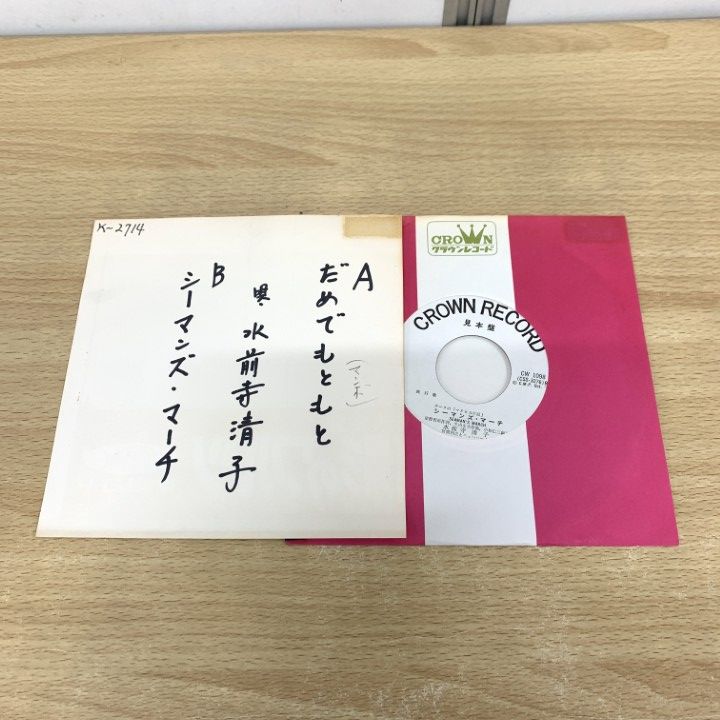 K-2714
A
だめでもともと
(マンボ)
唄 水前寺清子
B
シーマンズ・マーチ
CROWN
クラウンレコード
CROWN RECORD
見本盤
シーマンズ・マーチ
SEAMAN'S MARCH
水前寺清子